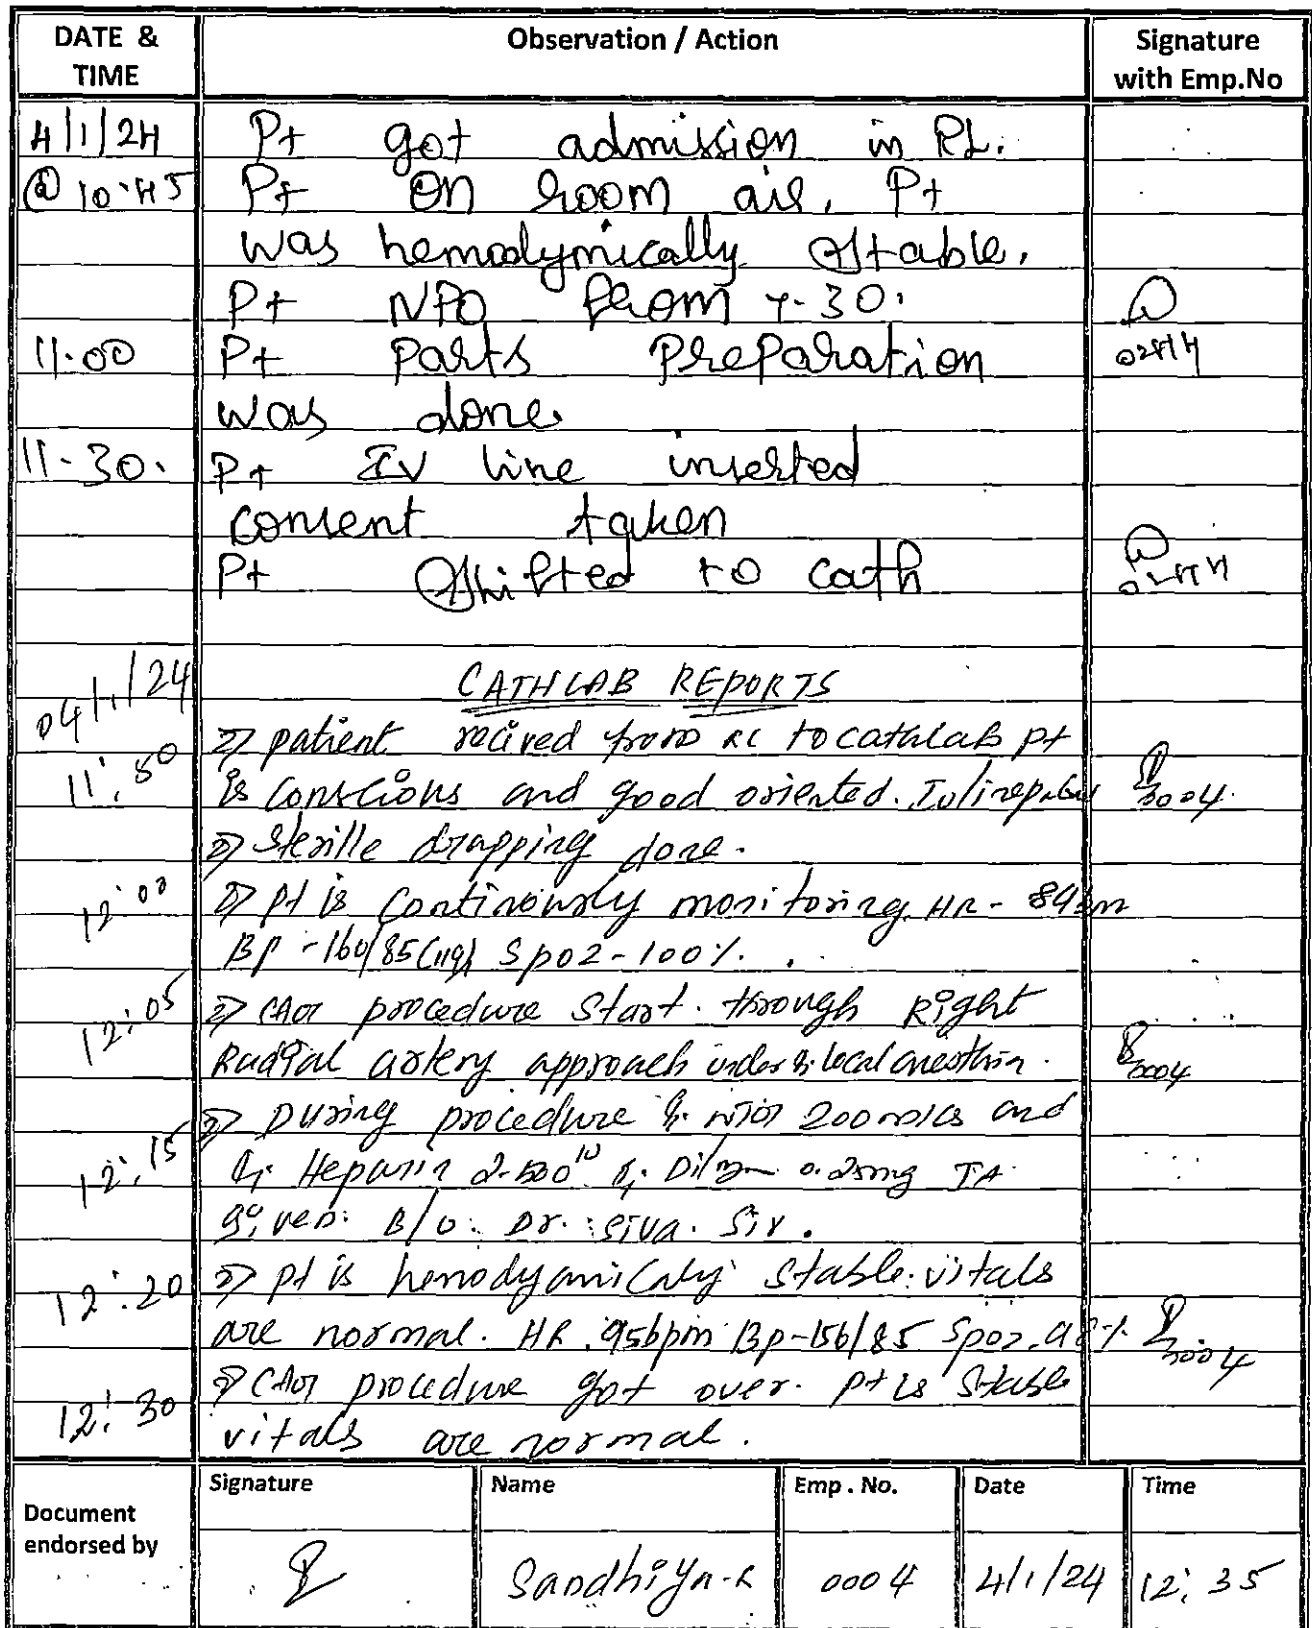 DATE & TIME
Observation / Action
Signature with Emp.No
4/1/24 Pt got admission in RL.
@ 10:45 Pt on room air. Pt
was hemodymically stable.
Pt NPO from 7-30.
11.00 Pt Parts Preparation
was done.
11-30. Pt IV line inserted
consent taken
Pt shifted to cath
04/1/24 CATHLAB REPORTS
11:50 => patient recived from RL to cathlab pt
is conscious and good oriented.
=> Sterille drapping done.
12:00 => pt is continously monitoring. HR - 84bm
BP - 160/85(119) Spo2-100%.
12:05 => CAG procedure start. through Right
Radial artery approach under local
=> During procedure 200 mics and
12:15 Heparin 0.25mg IA
given. B/O. Dr. Siva. Sir.
12:20 => pt is hemodyamicaly stable. vitals
are normal. HR. 95bpm Bp-156/85 Spo2-98%.
0004
12:30 => CAG procedure got over. pt is stable
vitals are normal.
Document endorsed by
Signature Name Emp. No. Date Time
Sandhiya-R 0004 4/1/24 12:35